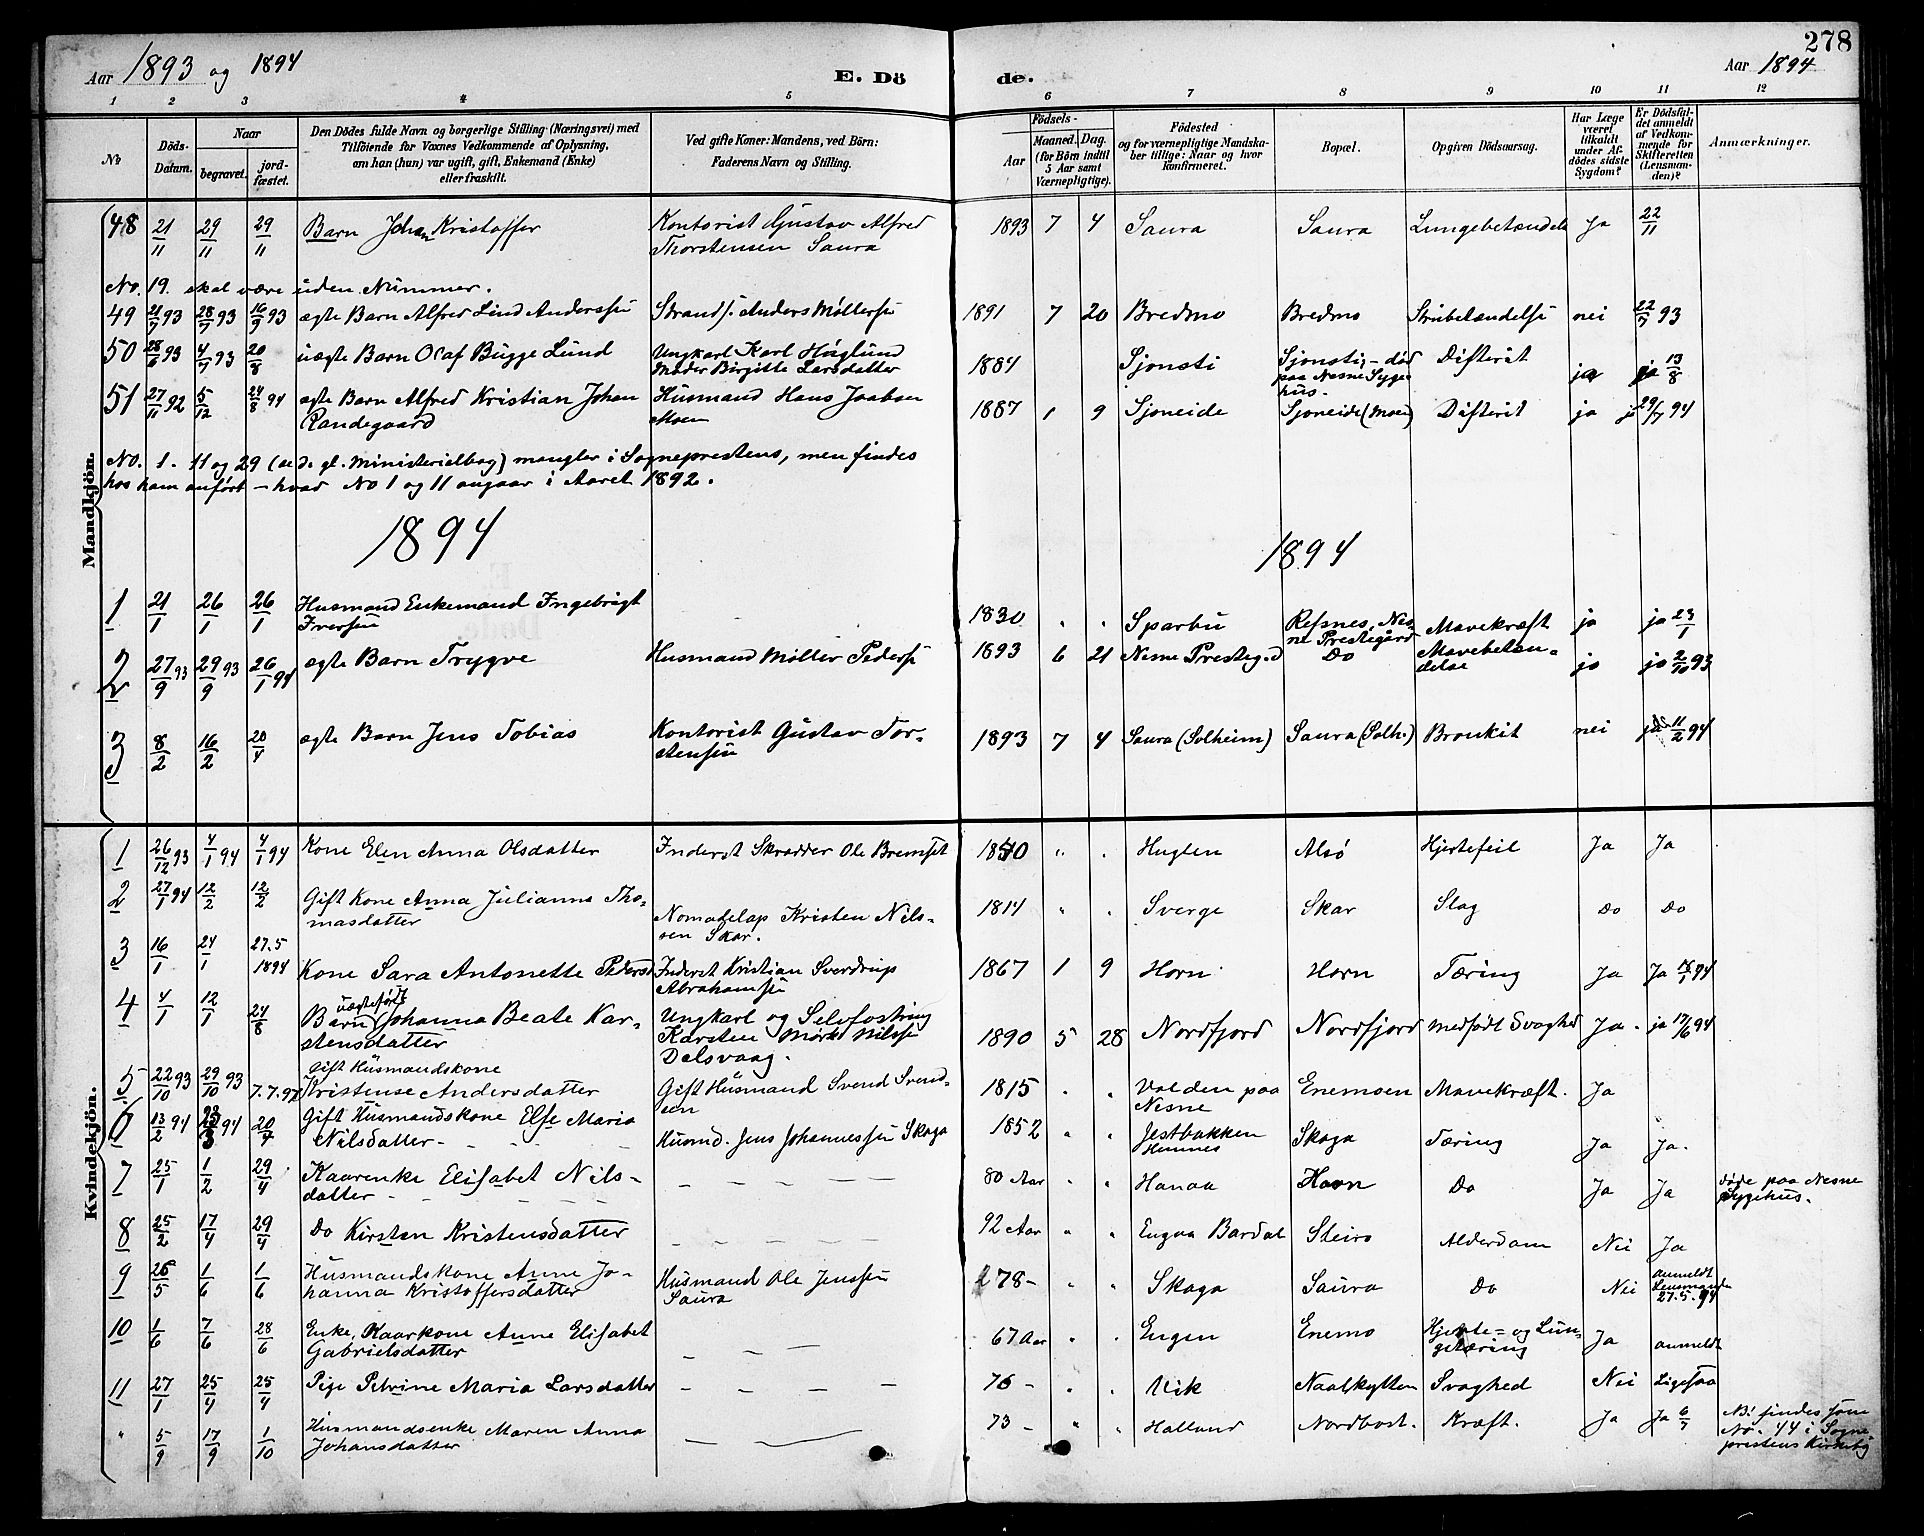 278
Aar 1893 og 1894
E. Dö
de.
Aar 1894
1 2 3 4 5 6 7 8 9 10 11 12
No
Döds-Datum.
Naar
begravet.
jord-fæstet.
Den Dödes fulde Navn og borgerlige Stilling (Næringsvei) med
Tilföiende for Voxnes Vedkommende af Oplysning,
om han (hun) var ugift, gift, Enkemand (Enke)
eller fraskilt.
Ved gifte Koner: Mandens, ved Börn:
Faderens Navn og Stilling.
Födsels-
Aar
Maaned. Dag.
(for Börn indtil
5 Aar samt
Værnepligtige).
Födested
og for værnepligtige Mandska-
ber tillige: Naar og hvor
konfirmeret.
Bopæl.
Opgiven Dödsaarsag.
Har Læge
været
tilkaldt
under Af-
dödes sidste
Sygdom?
Er Dödsfal-
det anmeldt
af Vedkom-
mende for
Skifteretten
(Lensman-
den)?
Anmærkninger.
Mandkjön.
48 21/11 29/11 29/11 Barn Johan Kristoffer Kontorist Gustav Alfred 1893 7 4 Saura Saura Lungebetændels Ja 22/11
Thorstensen Saura
No. 19. skal være uden Nummer.
49 21/7 93 28/7 93 16/9 93 ægte Barn Alfred Lind Anderssen Strands. Anders Møllersen 1891 7 20 Bredmo Bredmo Strubetændelse nei 22/7 93
50 28/6 93 4/7 93 20/8 uægte Barn Olaf Bugge Lund Ungkarl Karl Høglund 1884 Sjonsti Sjonsti,- død Difterit ja ja 13/8
Moder Birgitte Larsdatter paa Nesne Syge-
hus.
51 27/11 92 5/12 24/8 94 ægte Barn Alfred Kristian Johan Husmand Hans Jacobsen 1887 1 9 Sjoneide Sjoneide (Moen) Difterit ja ja 29/7 94
Randegaard Moen
No. 1. 11 og 29 (i de gl. Ministerialbog) mangler i Sogneprestens, men findes
hos ham anført - hvad No 1 og 11 angaar i Aaret 1892.
1894 1894
1 21/1 26/1 26/1 Husmand Enkemand Ingebrigt 1830 " " Sparbu Refsnes, Nes- Mavekræft ja ja 23/1
Iversen ne Prestegård
2 27/9 93 29/9 93 26/1 94 ægte Barn Trygve Husmand Møller Peders 1893 6 21 Nesne Presteg-d Do Mavebetæn- ja ja 2/10 93
delse
3 8/2 16/2 20/4 ægte Barn Jens Tobias Kontorist Gustav Tor- 1893 7 4 Saura (Solheim) Saura (Solh.) Bronkit nei ja 11/2 94
stensen
Kvindekjön.
1 26/12 93 4/1 94 4/1 94 Kone Elen Anna Olsdatter Inderst Skrædder Ole Bremset 1840 " " Huglen Alsö Hjertefeil Ja Ja
2 27/1 94 12/2 12/2 Gift Kone Anna Julianna Tho- Nomadelap Kristen Nils- 1814 " " Sverge Skar Slag Do Do
masdatter sen Skar.
3 16/1 24/1 27.5 1894 Kone Sara Antonette Peders Inderst Kristian Sverdrup 1867 1 9 Horn Horn Tæring Ja Ja 94
Abrahamsen
4 4/1 12/1 24/8 Barn (uægtefødt) Johanna Beate Kar- Ungkarl og Selvfostring 1890 5 28 Nordfjord Nordfjord medfødt Svaghed Ja ja 17/6 94
stensdatter Karsten Mørk Nilsse
Delsvaag.
5 22/10 93 29/10 93 7.7.97 Gift Husmandskone
Kristense Andersdatter Gift Husmand Svend Svend- 1815 " " Valden paa Enemoen Mavekræft. Ja
sen Nesne
6 13/2 94 94 20/4 Gift Husmandskone Else Maria 1852 " " Jestbakken Skaga Tæring Ja Ja.
Nilsdatter Husmd. Jens Johannessen Skaga Hemnes
7 25/1 1/2 29/4 Kaarenke Elisabet Nils- 80 Aar " " Hanaa Havn Do Ja Ja døde paa Nesne
datter Sygehus.
8 25/2 17/4 29/4 Do Kirsten Kristensdatter 92 Aar " " Engaa Bardal Steiro Alderdom Nei Ja
9 26/5 1/6 1/6 Husmandskone Anne Jo- Husmand Ole Jenssen 78- " " Skaga Saura Do Nei anmeldt
hanna Kristoffersdatter Saura Lensmanden
27.5.94
10 1/6 7/6 28/6 Enke, Kaarkone Anne Elisabet 67 Aar " " Engen Enemo Hjerte- og Lun- Ja anmeldt
Gabrielsdatter getæring
11 27/1 25/4 25/4 Pige Petrine Maria Larsdatter 76 - " " Vik Naalskytten Svaghed Nei Ligesaa
" 5/9 17/9 1/10 Husmandsenke Maren Anna 73 - " " Halland Nordbost. Kræft. Ja Ja 6/7 NB. findes som
Johansdatter No. 44 i Sogne-
prestens Kirkebog